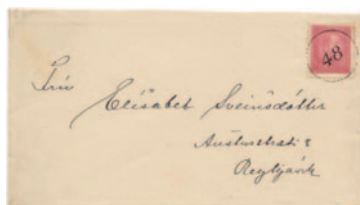 48
Frú
Elísabet Sveinsdóttir
Austurstræti
Reykjavík